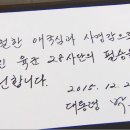 철한 애국심과 사명감으로
육군 28사단의 필승을
합니다.
2015. 12. 2
대통령 박